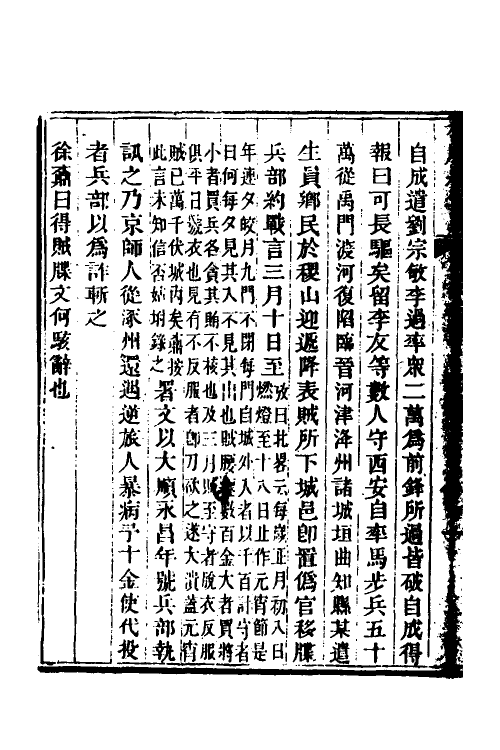 自成遣劉宗敏李過率衆二萬爲前鋒所過皆破自成得
報曰可長驅矣留李友等數人守西安自率馬步兵五十
萬從禹門渡河復陷臨晉河津絳州諸城垣曲知縣某遣
生員鄉民於稷山迎遞降表賊所下城邑卽置僞官移牒
兵部約戰言三月十日至攷曰北畧元每歲正月初八日
燃燈至十八日止作元宵節是
年連夕皎月九門不閉每門自城外入者以千百計守者
曰何每夕見其入不見其出也賊腰數百金大者買將
小者買兵各貪其賄不核也及三月賊至守者脫衣反服
俱平日號衣也見有不反服者卽刀砍之遂大潰蓋元宵
賊已萬千伏城內矣鼒按
此言未知信否姑附錄之署文以大順永昌年號兵部執
訊之乃京師人從涿州還遇逆旅人暴病予十金使代投
者兵部以爲詐斬之
徐鼒曰得賊牒文何駭辭也